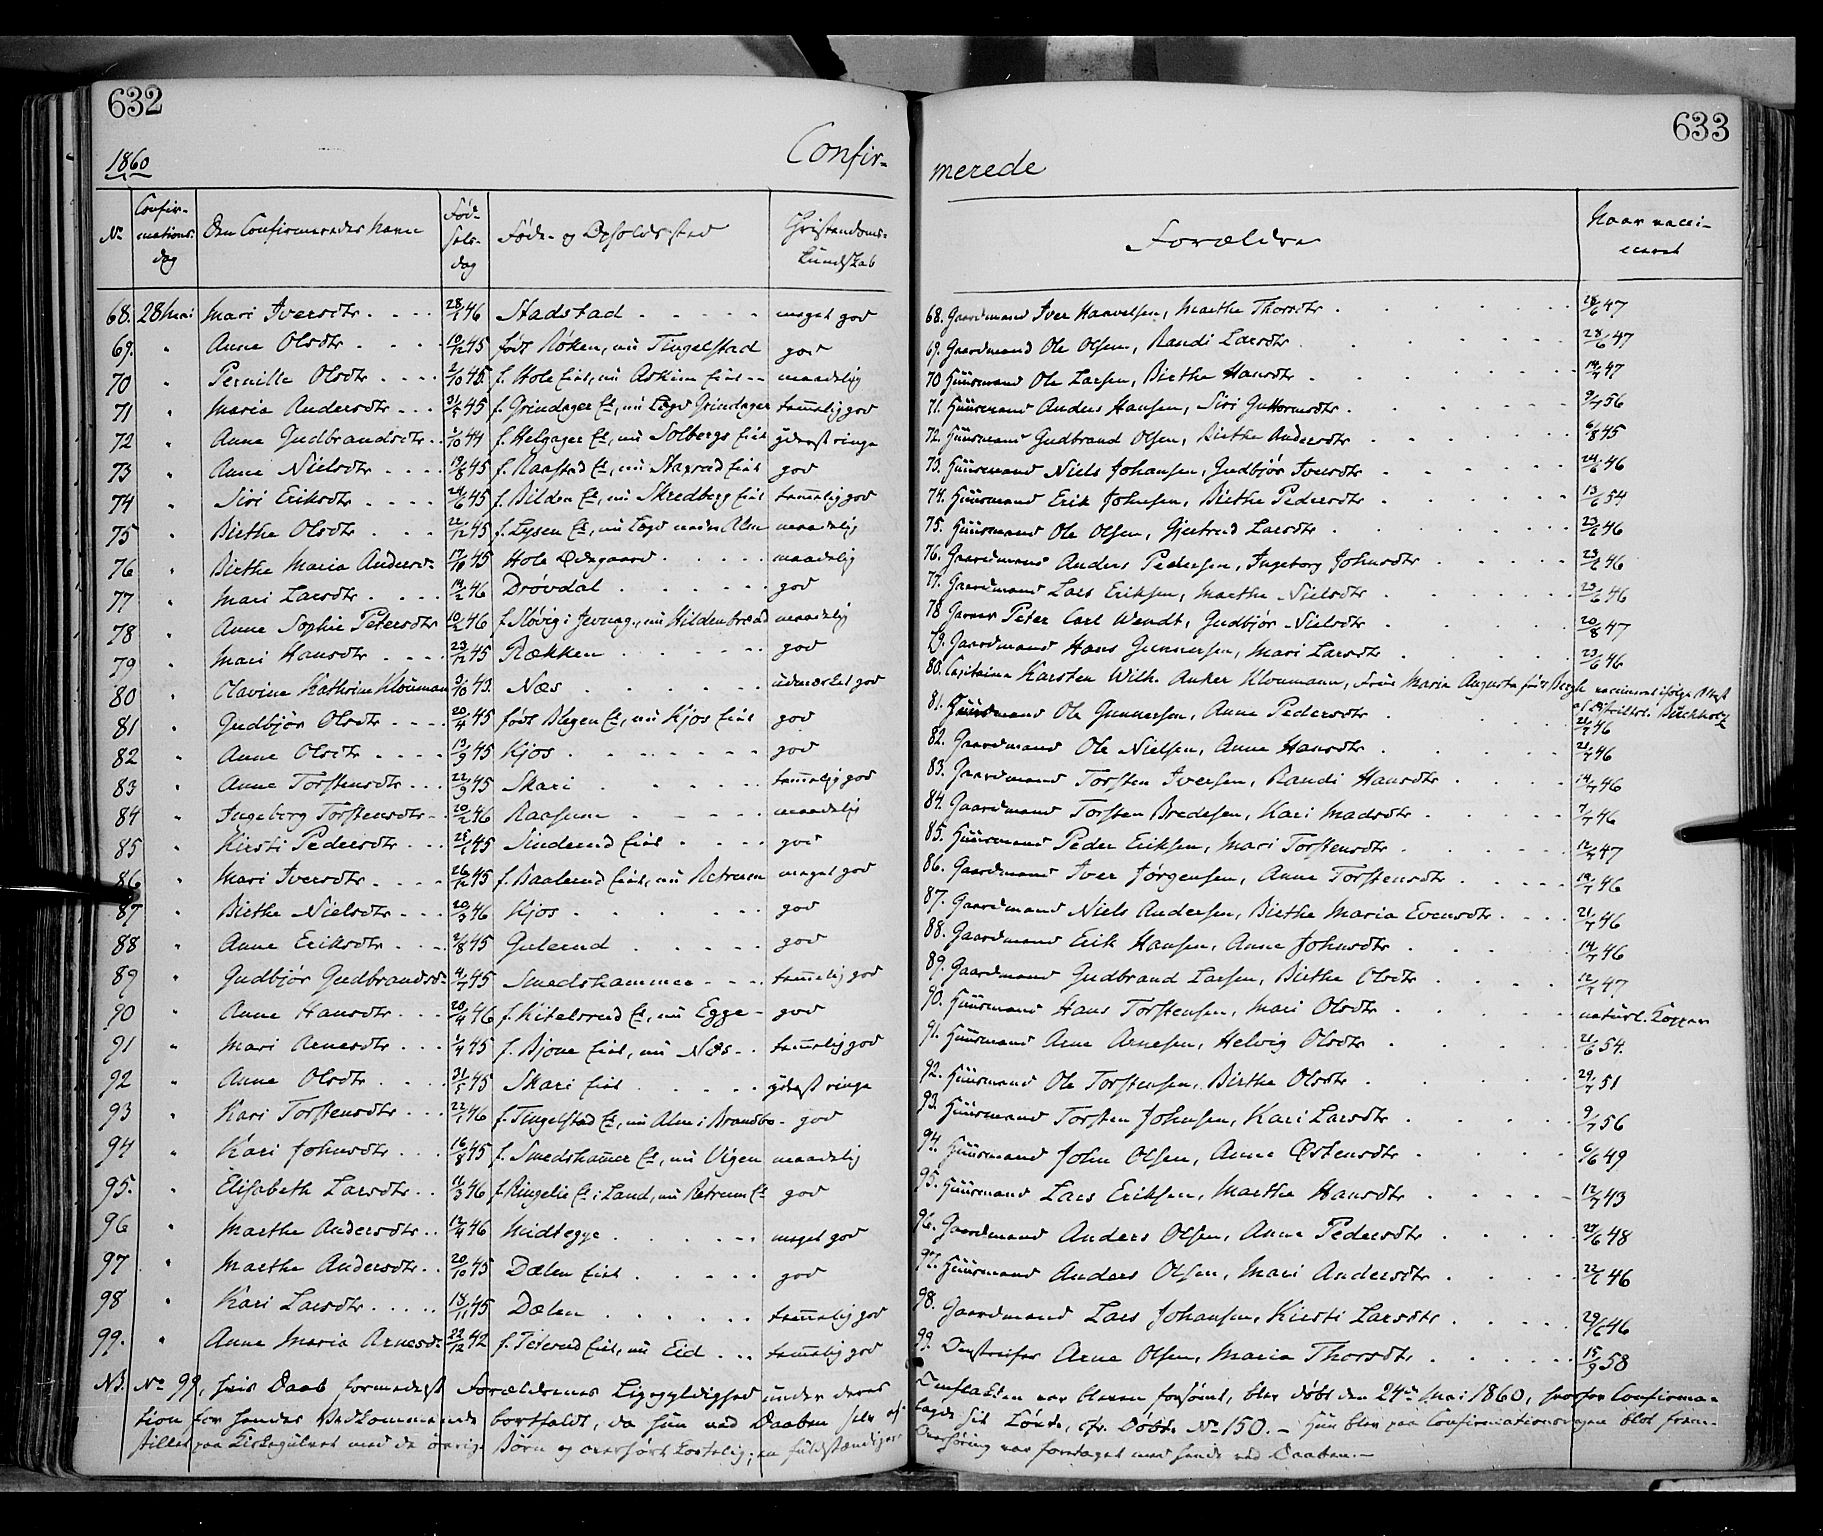 632
1860
Confir-
No
Confir-
mations-
dag
Den Confirmeredes Navn
Fød-
sels-
dag
Føde- og Opholdssted
Christendoms-
kundskab
68. 28 Mai Mari Iversdtr 28/1 46 Stadstad meget god
69. " Anne Olsdtr 10/12 45 født Røken, nu Tingelstad god
70 " Pernille Olsdtr 2/10 45 f. Hole Eiet, nu Askim Eiet maadelig
71 " Maria Andersdtr 31/5 45 f. Grindager Et, nu Lægd Grindager temmelig god
72 " Anne Gudbrandsdtr 1/10 44 f. Helgager Et, nu Solbergs Eiet yderst ringe
73 " Anne Nielsdtr 45 f. Raastad Et, nu Eiet god
74 " Siri Eriksdtr 24/6 45 f. Bilden Et, nu Skredberg Eiet temmelig god
75 " Birthe Olsdtr 22/12 45 f. Lysen Et, nu Lægd nedre Alm maadelig
76 " Birthe Maria Andersd. 17/10 45 Hole Ødegaard maadelig
77 " Mari Larsdtr 14/2 46 Drøvdal god
78 " Anne Sophie Petersdtr 10/2 46 f. Støvig i Jevnag., nu Hildenbrænd maadelig
79 " Mari Hansdtr 23/12 45 Rækken god
80 " Olavine Kathrine Klouman 3/10 43. Næs udmærket god
81 " Gudbjør Olsdtr 20/4 45 født Blegen Et, nu Kjos Eiet god
82 " Anne Olsdtr 13/9 45 Kjos god
83 " Anne Torstensdtr 22/9 45 Skari temmelig god
84 " Ingeborg Torstensdtr 20/2 46 Raasum maadelig
85 " Kirsti Pedersdtr 25/1 45 Sinderud Eiet god
86 " Mari Iversdtr 26/12 45 f. Raalerud Eiet, nu Retrum meget god
87 " Birthe Nielsdtr 20/3 46 Kjos god
88 " Anne Eriksdtr 2/8 45 Gulerud god
89 " Gudbjør Gudbrandsd. 4/7 45 Smedshammer temmelig god
90 " Anne Hansdtr 20/4 46 f. Kitelsrud Et, nu Egge god
91 " Mari Arnesdtr 1/4 45 f. Bjone Eiet, nu Næs temmelig god
92 " Anne Olsdtr 31/5 45 Skari Eiet yderst ringe
93 " Kari Torstensdtr 22/1 46 f. Tingelstad Et, nu Alm i Brandbo god
94 " Kari Johnsdtr 16/8 45 f. Smedshammer Et, nu Vigen maadelig
95. " Elisabeth Larsdtr 11/3 46 f. Ringelie Et i Land, nu Retrum Et god
96 " Marthe Andersdtr 12/4 46 Midtegge meget god
97 " Marthe Andersdtr 20/10 45 Dælen Eiet god
98 " Kari Larsdtr 18/11 45 Dælen temmelig god
99. " Anne Maria Arnesd. 22/12 42 f. Teterud Eiet, nu Eid temmelig god
NB. No 99, hvis Daab formedelst Forældrenes Ligegyldighed under deres
tion for hendes Vedkommende bortfaldt, da hun ved Daaben selv af-
stilles paa Kirkegulvet med de øvrige Børn og overhørt kortelig; en fuldstændigere
633
merede
Forældre
Naar vacci-
neret
68. Gaardmand Iver Haavelsen, Marthe Thorsdtr 28/6 47
69. Gaardmand Ole Olsen, Randi Larsdtr 28/6 47
70 Huusmand Ole Larsen, Birthe Hansdtr 14/7 47
71. Huusmand Anders Hansen, Siri Guttormsdtr 9/7 56
72. Huusmand Gudbrand Olsen, Birthe Andersdtr 6/8 45
73. Huusmand Niels Johansen, Gudbjør Iversdtr 24/6 46
74. Huusmand Erik Johnsen, Birthe Pedersdtr 13/6 54
75. Huusmand Ole Olsen, Gjertrud Larsdtr 23/6 46
76. Gaardmand Anders Pedersen, Ingeborg Johnsdtr 23/6 46
77. Gaardmand Lars Eriksen, Marthe Nielsdtr 23/6 46
78 Garver Peter Carl Wendt, Gudbjør Nielsdtr 20/8 47
79. Gaardmand Hans Gunnersen, Mari Larsdtr 23/6 46
80. Capitaine Karsten Wilh. Anker Kloumann, Frue Maria Augusta født Bergh vaccineret ifølge Attest
af Distriktsl. Buchholtz
81. Huusmand Ole Gunnersen, Anne Pedersdtr 21/7 46
82. Gaardmand Ole Nielsen, Anne Hansdtr 21/7 46
83. Gaardmand Torsten Iversen, Randi Hansdtr 14/7 46
84. Gaardmand Torsten Bredesen, Kari Madsdtr 7/7 46
85. Huusmand Peder Eriksen, Mari Torstensdtr 12/7 47
86. Gaardmand Iver Jørgensen, Anne Torstensdtr 14/7 46
87. Gaardmand Niels Andersen, Birthe Maria Evensdtr 21/7 46
88. Gaardmand Erik Hansen, Anne Johnsdtr 14/7 46
89. Gaardmand Gudbrand Larsen, Birthe Olsdtr 12/7 47
90. Huusmand Hans Torstensen, Mari Olsdtr naturl. Kopper
91. Huusmand Arne Arnesen, Helvig Olsdtr 21/6 54.
92. Huusmand Ole Torstensen, Birthe Olsdtr 29/7 51
93. Huusmand Torsten Johnsen, Kari Larsdtr 9/7 56
94. Huusmand John Olsen, Anne Østensdtr 6/6 49
95. Huusmand Lars Eriksen, Marthe Hansdtr 12/7 43
96. Gaardmand Anders Olsen, Anne Pedersdtr 27/6 48
97. Huusmand Anders Olsen, Mari Andersdtr 22/6 46
98. Gaardmand Lars Johansen, Kirsti Larsdtr 29/6 46
99. Arne Olsen, Maria Thorsdtr 15/9 58
var bleven forsømt, blev døbt den 24de Mai 1860, hvorfor Confirma-
lagde sit Løfte, cfr. Døbte No 150. – Hun blev paa Confirmationsdagen blot frem-
Overhøring var foretaget med hende ved Daaben. –